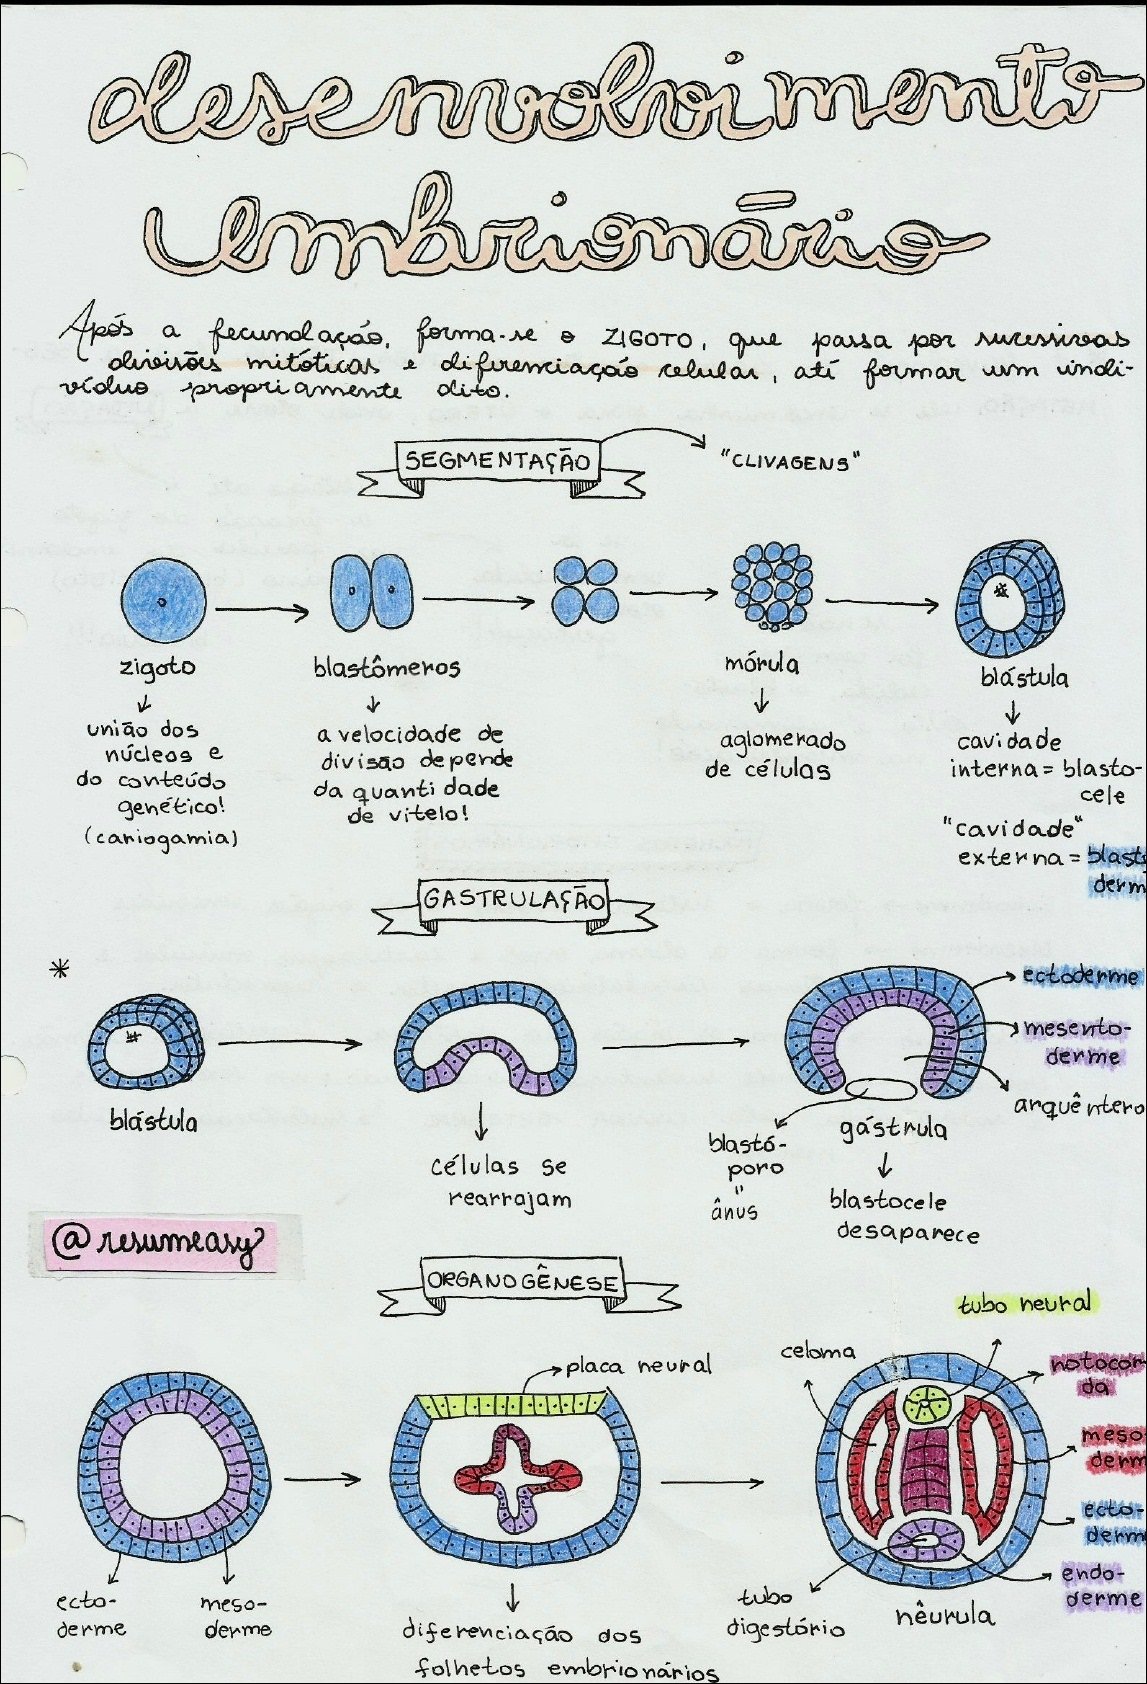 desenvolvimento
Embrionário
Após a fecundação, forma-se o ZIGOTO, que passa por sucessivas
divisões mitóticas e diferenciação celular, até formar um indi-
víduo propriamente dito.
SEGMENTAÇÃO
"CLIVAGENS"
zigoto
união dos
núcleos e
do conteúdo
genético!
(cariogamia)
blastômeros
a velocidade de
divisão depende
da quantidade
de vitelo!
mórula
aglomerado
de células
blástula
cavidade
interna = blasto-
cele
"cavidade"
externa = blasto
derm
GASTRULAÇÃO
*
blástula
células se
rearrajam
ectoderme
mesento-
derme
arquêntero
gástrula
blastocele
desaparece
blastó-
poro
"
ânus
@resumeasy
ORGANOGÊNESE
ecto-
derme
meso-
derme
placa neural
diferenciação dos
folhetos embrionários
tubo neural
celoma
notocor
da
meso
derm
ecto-
derm
endo-
derme
tubo
digestório
nêurula